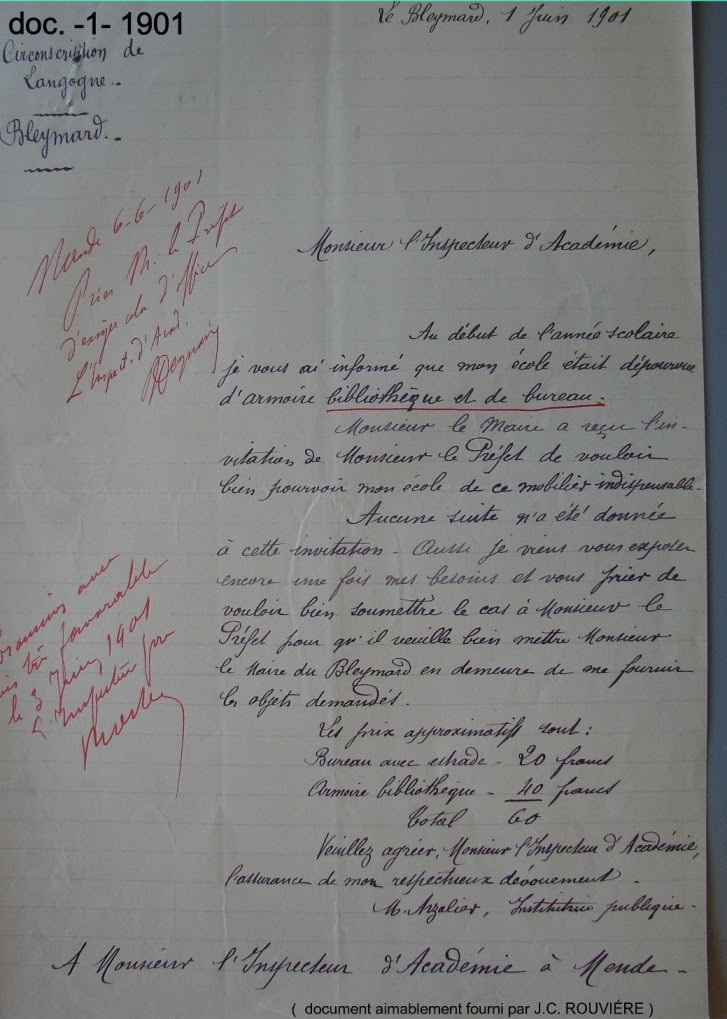 doc. -1- 1901
Le Bleymard, 1 Juin 1901
Circonscription de
Langogne.
Bleymard.
Mende 6-6-1901
Prier M. le Préfet
d'exiger cela d'office
L'Inspect. d'Acad.
Monsieur l'Inspecteur d'Académie,
Au début de l'année scolaire
je vous ai informé que mon école était dépourvue
d'armoire bibliothèque et de bureau.
Monsieur le Maire a reçu l'in-
vitation de Monsieur le Préfet de vouloir
bien pourvoir mon école de ce mobilier indispensable.
Aucune suite n'a été donnée
à cette invitation - Aussi je viens vous exposer
encore une fois mes besoins et vous prier de
vouloir bien soumettre le cas à Monsieur le
Préfet pour qu'il veuille bien mettre Monsieur
le Maire du Bleymard en demeure de me fournir
les objets demandés.
Transmis avec
avis très favorable
le 3 Juin 1901
L'Inspecteur pre
Les prix approximatifs sont :
Bureau avec estrade - 20 francs
Armoire bibliothèque - 40 francs
Total 60
Veuillez agréer, Monsieur l'Inspecteur d'Académie,
l'assurance de mon respectueux dévouement.
M. Arzalier, Institutrice publique.
A Monsieur l'Inspecteur d'Académie à Mende -
( document aimablement fourni par J.C. ROUVIÉRE )